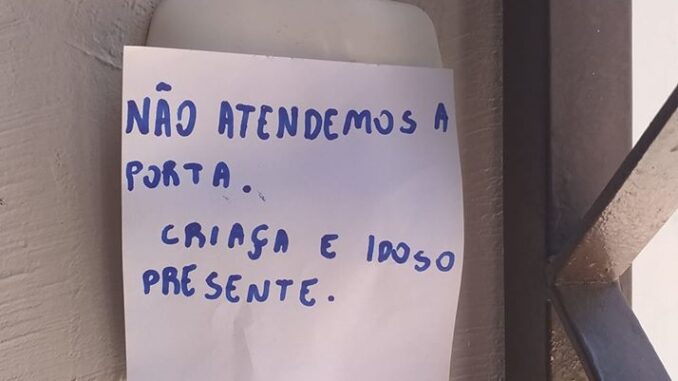 NÃO ATENDEMOS A
PORTA.
CRIAÇA E IDOSO
PRESENTE.